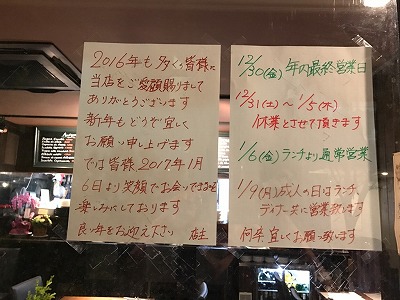 2016年も多くの皆様に
当店をご愛顧賜りまして
ありがとうございます
新年もどうぞ宜しく
お願い申し上げます
では皆様2017年1月
6日より笑顔でお会いできるのを
楽しみにしております
良い年をお迎え下さい 店主
12/30(金) 年内最終営業日
12/31(土)〜1/5(木)
休業とさせて頂きます
1/6(金)ランチより通常営業
1/9(月)成人の日はランチ
ディナー共に営業致します
何卒宜しくお願い致します